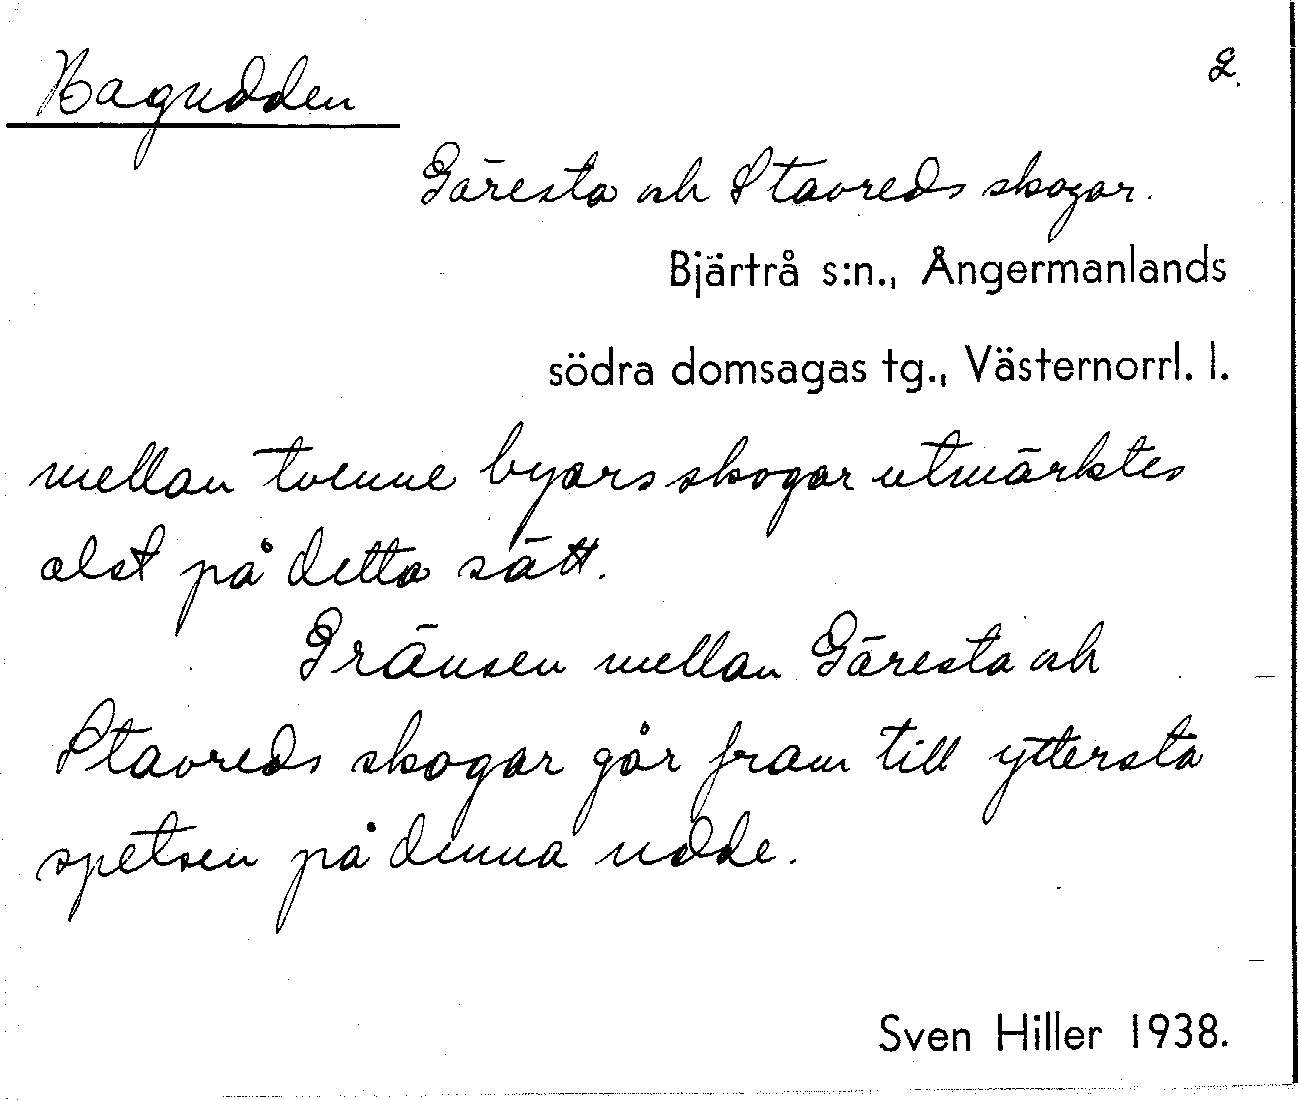 Hagudden
2.
Gäresta och Stavreds skogar.
Bjärtrå s:n., Ångermanlands
södra domsagas tg., Västernorrl. l.
mellan tvenne byars skogar utmärktes
alst på detta sätt.
Gränsen mellan Gäresta och
Stavreds skogar går fram till yttersta
spetsen på denna udde.
Sven Hiller 1938.